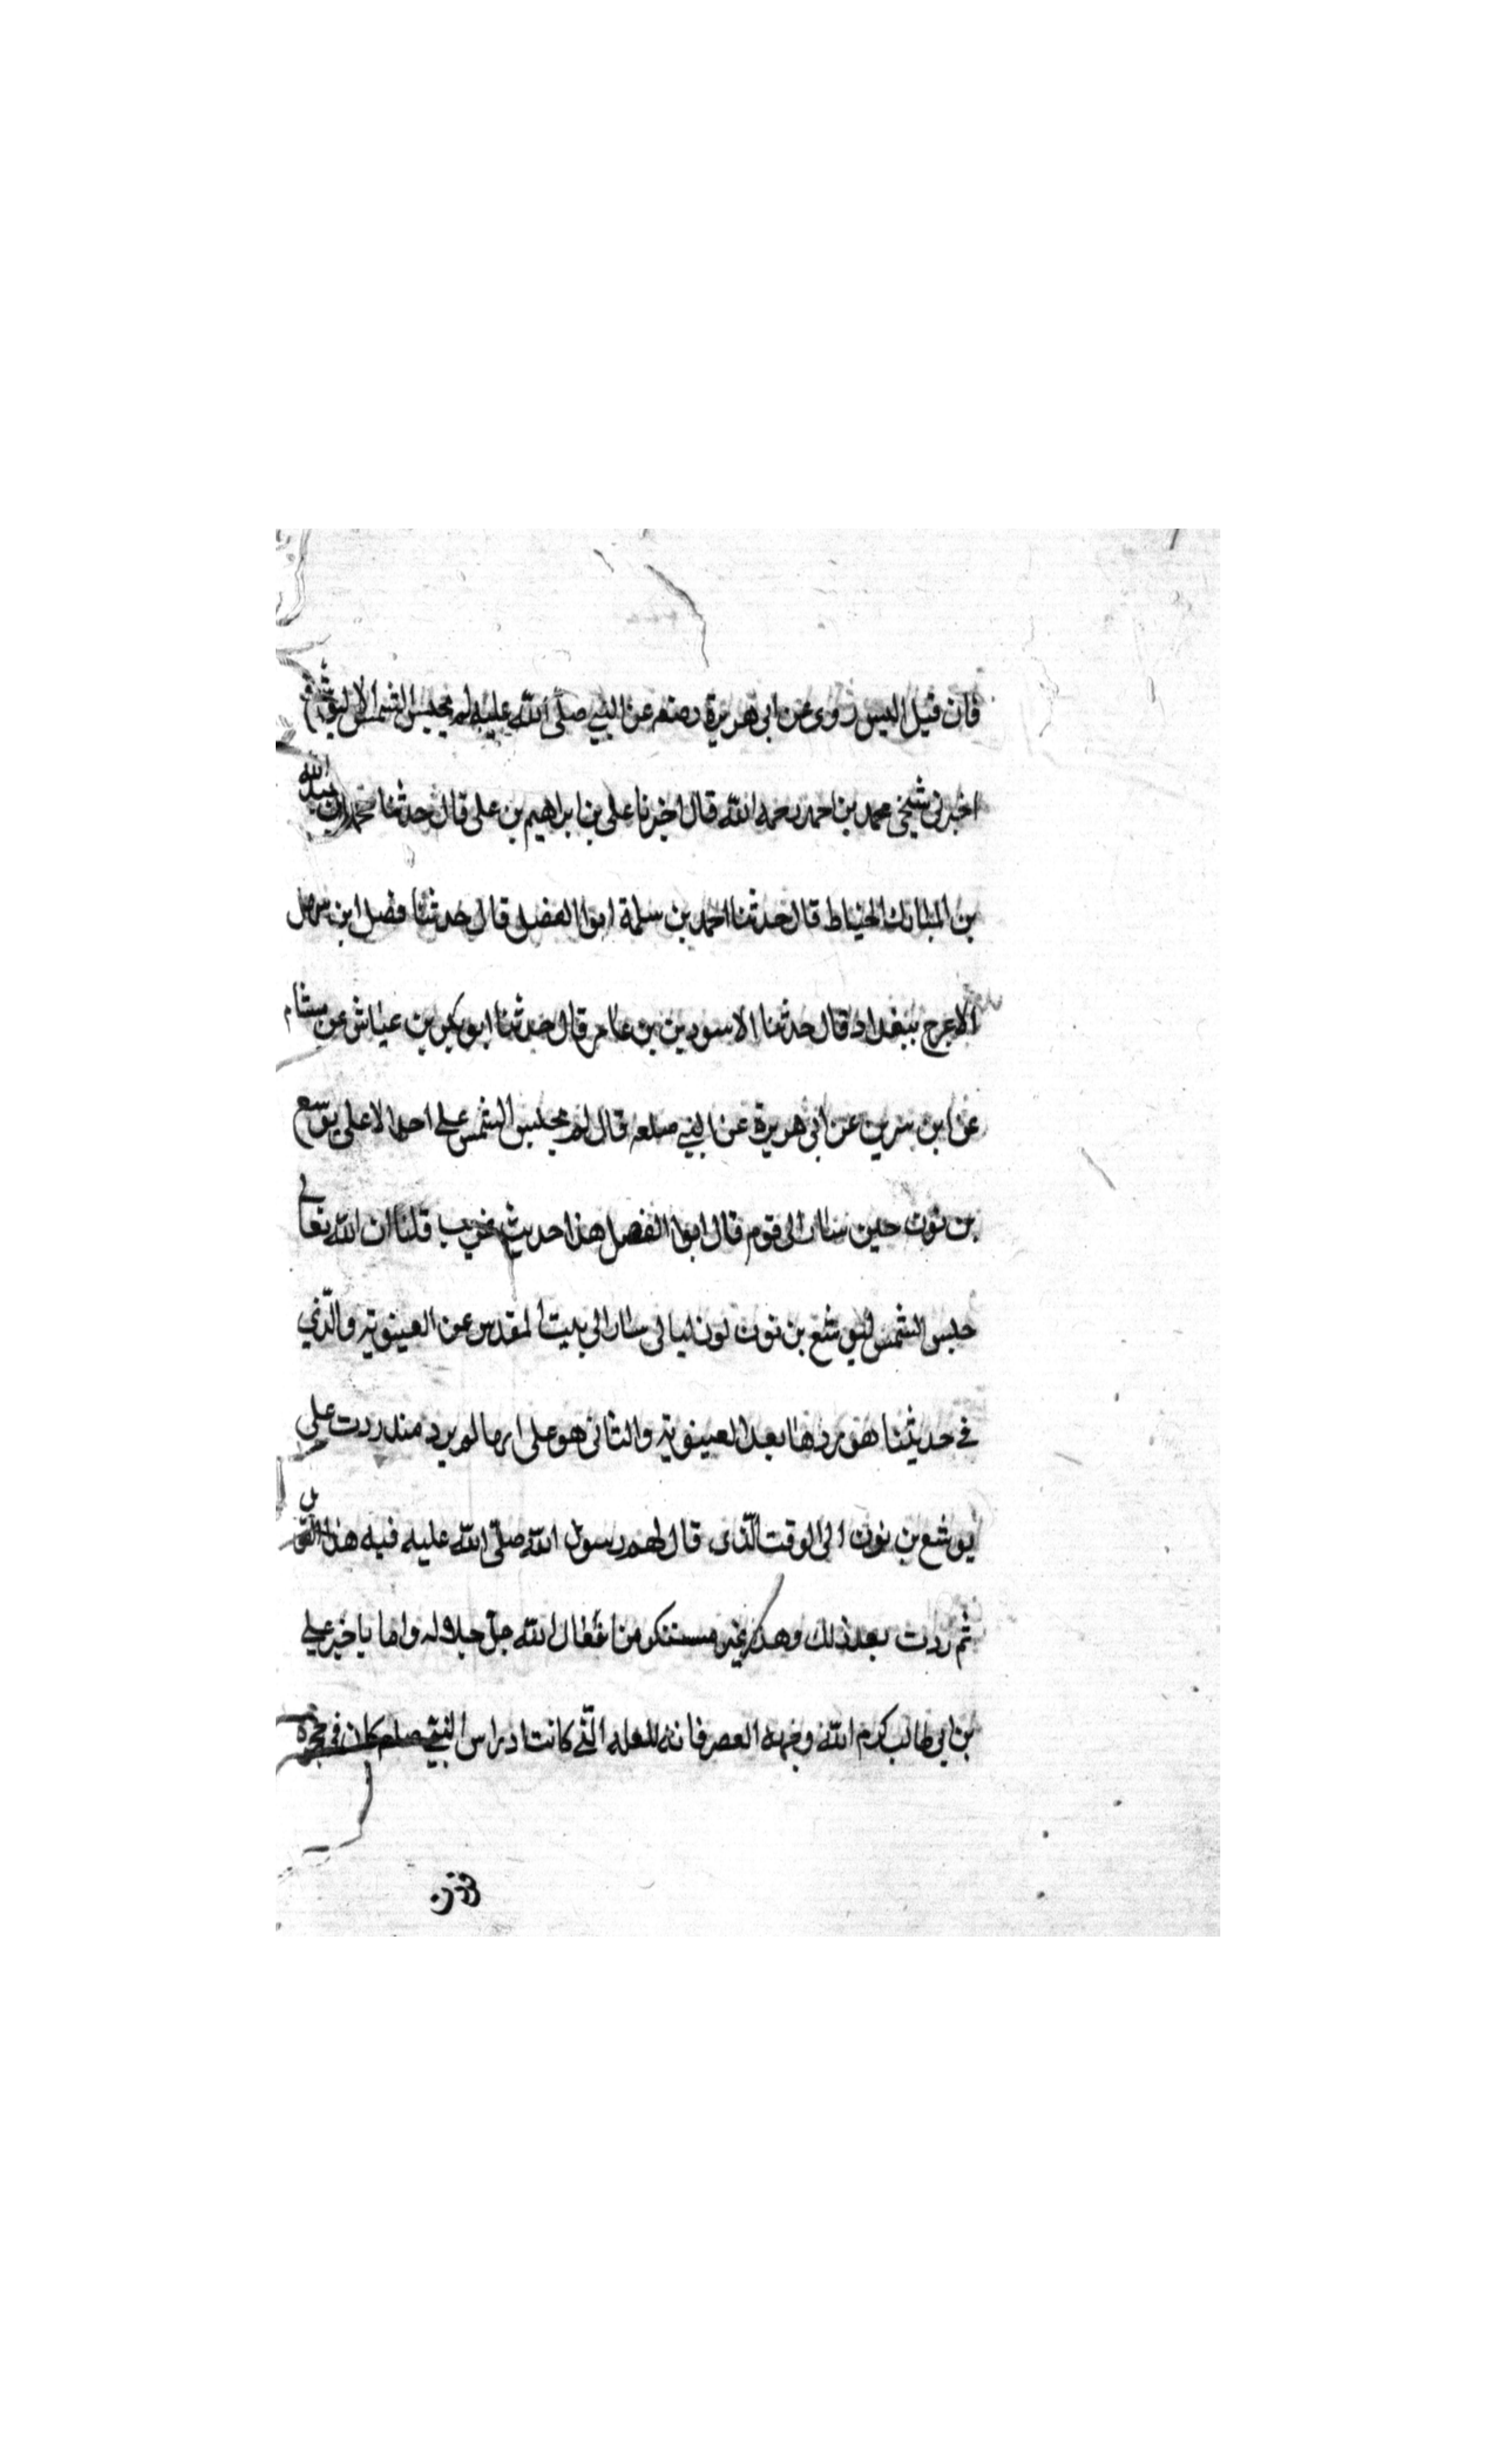 فان قيل اليس روى عن ابى هريرة رضه عن النبي صلّى الله عليه لم يحبس الشمس الا ليوشع
اخبرنى شيخى محمد بن احمد رحمه الله قال اخبرنا على بن ابراهيم بن على قال حدثنا محمد بن عبد الله
بن المبارك الخياط قال حدثنا احمد بن سلمة ابوا الفضل قال حدثنا فضل ابن سهل
الاعرج ببغداد قال حدثنا الاسود بن بن عامر قال حدثنا ابو بكر بن عياش عن هشام
عن ابن سرين عن ابى هريرة عن النبي صلعم قال لم يحبس الشمس على احد الا على يوسع
بن نون حين سار الى قوم قال ابوا الفضل هذا حديث غريب قلنا ان الله تعالى
حبس الشمس ليوشع بن نون ليالى سار الى بيت المقدس عن الغيبوبة والّذي
في حديثنا هو ردها بعد الغيبوبة والثانى هو على انها لم يرد منذ ردت على
يوشع بن نون الى الوقت الّذى قال لهم رسول الله صلّى الله عليه فيه هذا القول
ثم ردت بعد ذلك وهذا غير مستنكر من افعال الله جلّ جلاله واما تاخير على
بن ابى طالب كرم الله وجهه العصر فانه للعله الّتى كانت اذ راس النبي صلعم كان في حجره